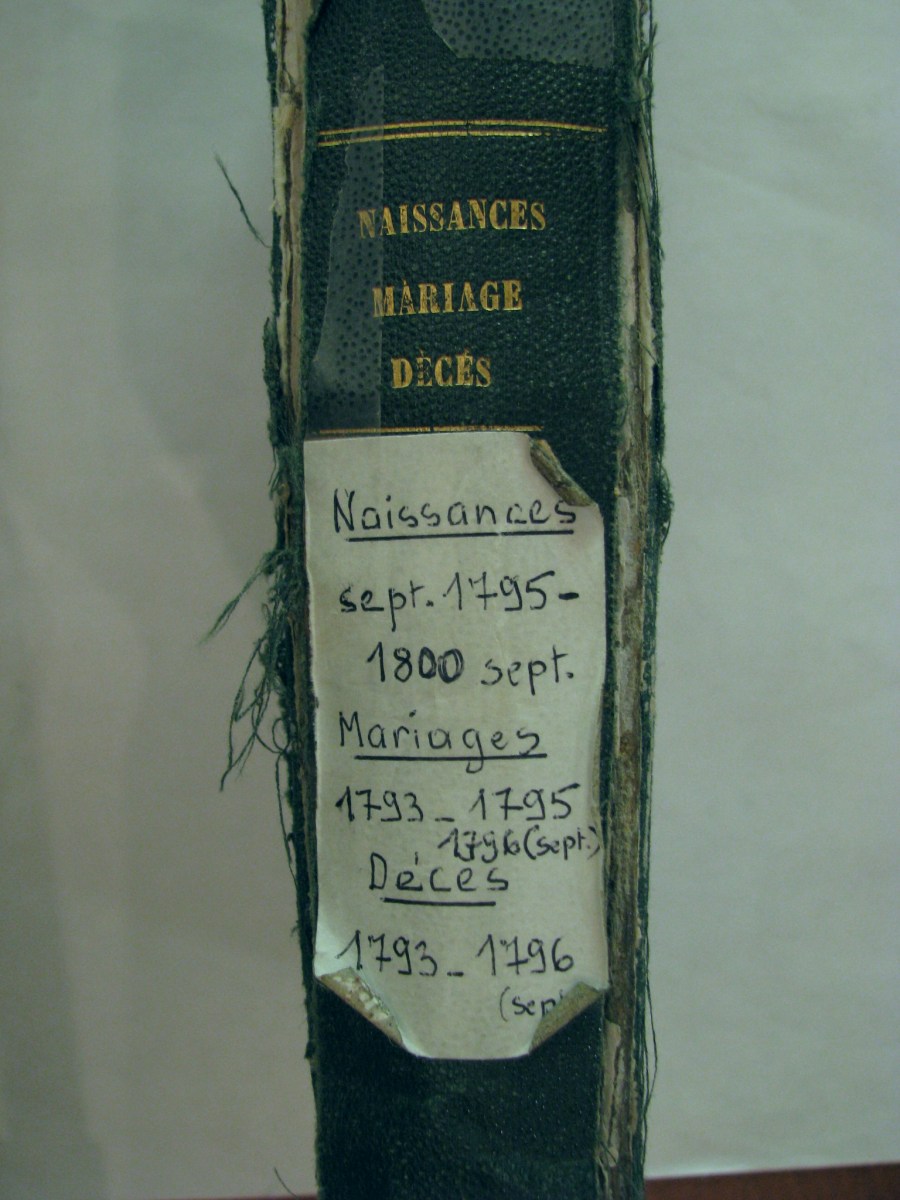 NAISSANCES
MARIAGE
DÈCÉS
Naissances
sept. 1795-
1800 sept.
Mariages
1793 - 1795
1796 (sept.)
Déces
1793 - 1796